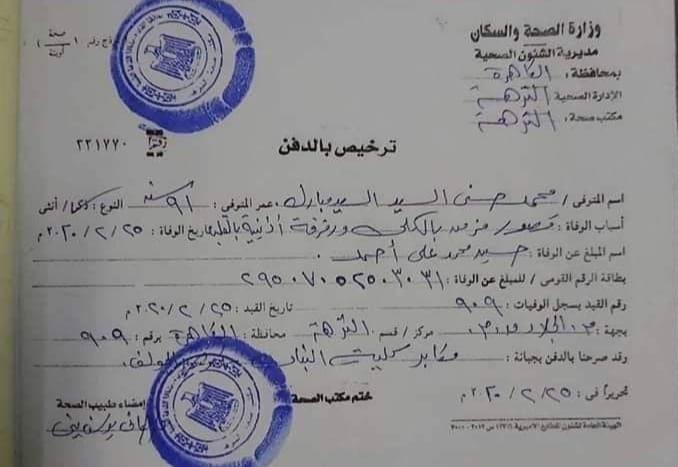 وزارة الصحة والسكان
مديرية الشئون الصحية
بمحافظة : القاهرة
الإدارة الصحية النزهة
مكتب صحة : النزهة
ترخيص بالدفن
٢٢١٧٧٠
اسم المتوفى / محمد حسنى السيد السيد مبارك عمر المتوفى : ٩١ سنة النوع : ذكر / أنثى
أسباب الوفاة : قصور مزمن بالكلى ورفرفة أذنية بالقلب تاريخ الوفاة : ٢٥ / ٢ / ٢٠٢٠ م
اسم المبلغ عن الوفاة : حسيد محمد على أحمد
بطاقة الرقم القومى / للمبلغ عن الوفاة : ٢٩٥٠٧٠٥٢٥٠٣٠٣١
رقم القيد بسجل الوفيات : ٩٠٩ تاريخ القيد : ٢٥ / ٢ / ٢٠٢٠ م
بجهة : م. الجلاء مركز / قسم النزهة محافظة : القاهرة برقم : ٩٠٩
وقد صرحنا بالدفن بجبانة : مقابر
تحريراً فى : ٢٥ / ٢ / ٢٠٢٠ م
ختم مكتب الصحة
إمضاء طبيب الصحة